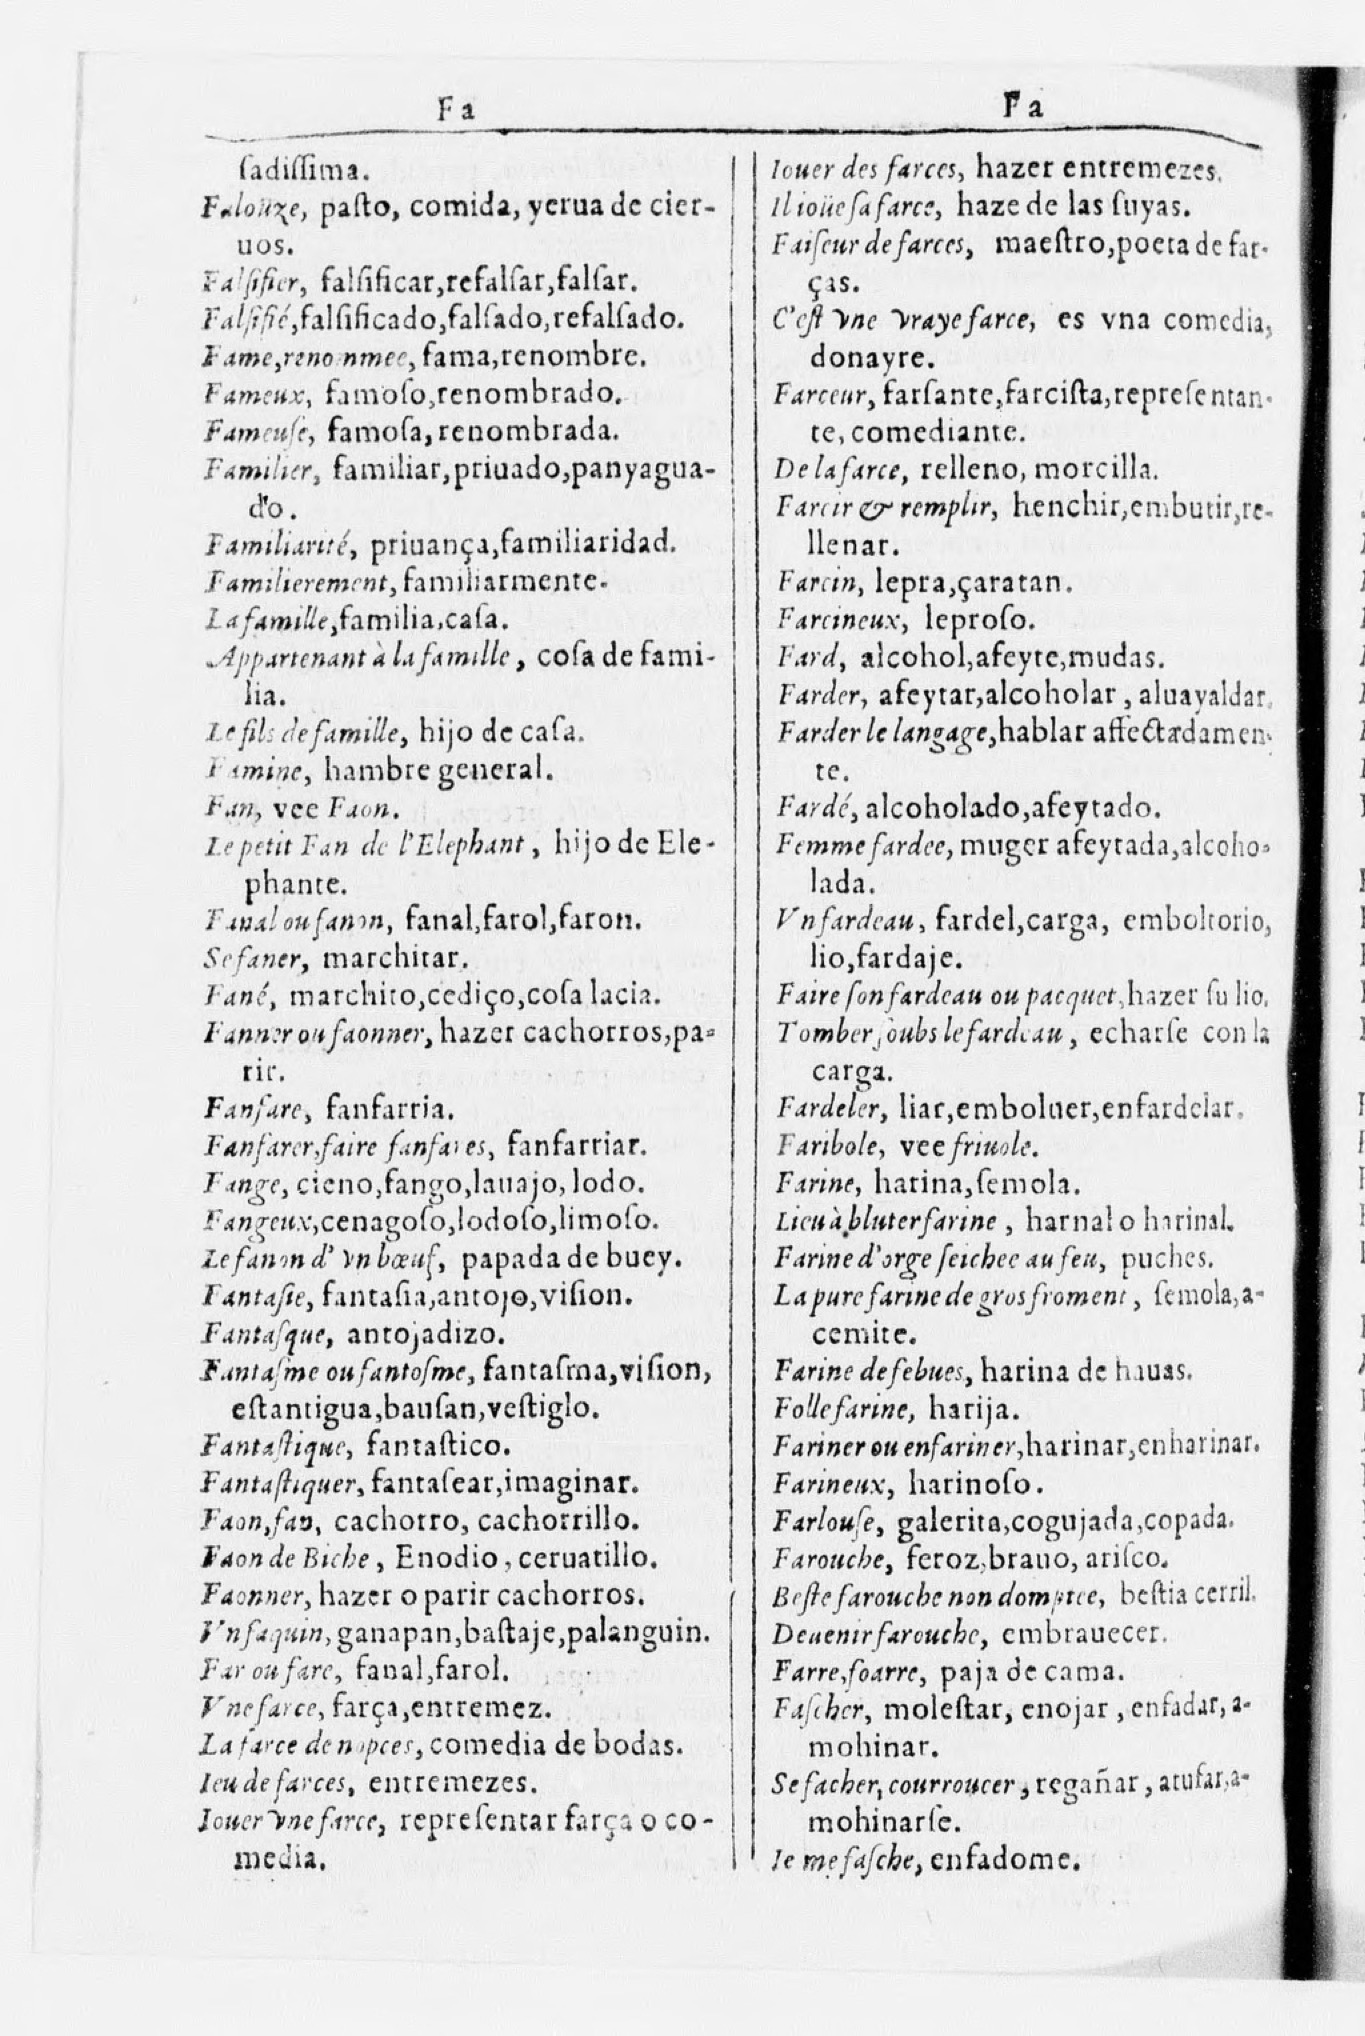 Fa
ſadiſſima.
Falouze, paſto, comida, yerua de cier-
uos.
Falſifier, falſificar,refalſar,falſar.
Falſifié,falſificado,falſado,refalſado.
Fame,renommee, fama,renombre.
Fameux, famoſo,renombrado.
Fameuſe, famoſa,renombrada.
Familier, familiar,priuado,panyagua-
do.
Familiarité, priuança,familiaridad.
Familierement,familiarmente.
La famille,familia,caſa.
Appartenant à la famille, coſa de fami-
lia.
Le fils de famille, hijo de caſa.
Famine, hambre general.
Fan, vee Faon.
Le petit Fan de l'Elephant, hijo de Ele-
phante.
Fanal ou fanon, fanal,farol,faron.
Se faner, marchitar.
Fané, marchito,cediço,coſa lacia.
Fanner ou faonner, hazer cachorros,pa-
rir.
Fanfare, fanfarria.
Fanfarer,faire fanfares, fanfarriar.
Fange, cieno,fango,lauajo,lodo.
Fangeux,cenagoſo,lodoſo,limoſo.
Le fanon d'vn bœuf, papada de buey.
Fantaſie, fantaſia,antojo,viſion.
Fantaſque, antojadizo.
Fantaſme ou fantoſme, fantaſma,viſion,
eſtantigua,bauſan,veſtiglo.
Fantaſtique, fantaſtico.
Fantaſtiquer, fantaſear,imaginar.
Faon,fan, cachorro, cachorrillo.
Faon de Biche, Enodio, ceruatillo.
Faonner, hazer o parir cachorros.
Vn faquin,ganapan,baſtaje,palanguin.
Far ou fare, fanal,farol.
Vne farce, farça,entremez.
La farce de nopces, comedia de bodas.
Ieu de farces, entremezes.
Iouer vne farce, repreſentar farça o co-
media.
Fa
Iouer des farces, hazer entremezes.
Il ioüe ſa farce, haze de las ſuyas.
Faiſeur de farces, maeſtro,poeta de far-
ças.
C'eſt vne vraye farce, es vna comedia,
donayre.
Farceur, farſante,farciſta,repreſentan-
te, comediante.
De la farce, relleno, morcilla.
Farcir & remplir, henchir,embutir,re-
llenar.
Farcin, lepra,çaratan.
Farcineux, leproſo.
Fard, alcohol,afeyte,mudas.
Farder, afeytar,alcoholar, aluayaldar.
Farder le langage,hablar affectadamen-
te.
Fardé, alcoholado,afeytado.
Femme fardee, muger afeytada,alcoho-
lada.
Vn fardeau, fardel,carga, emboltorio,
lio,fardaje.
Faire ſon fardeau ou pacquet,hazer ſu lio.
Tomber ſoubs le fardeau, echarſe con la
carga.
Fardeler, liar,emboluer,enfardelar.
Faribole, vee friuole.
Farine, harina,ſemola.
Lieu à bluter farine, harnal o harinal.
Farine d'orge ſeichee au feu, puches.
La pure farine de gros froment, ſemola,a-
cemite.
Farine de febues, harina de hauas.
Folle farine, harija.
Fariner ou enfariner,harinar,enharinar.
Farineux, harinoſo.
Farlouſe, galerita,cogujada,copada.
Farouche, feroz,brauo, ariſco.
Beſte farouche non domptee, beſtia cerril.
Deuenir farouche, embrauecer.
Farre,foarre, paja de cama.
Faſcher, moleſtar, enojar, enfadar, a-
mohinar.
Se facher, courroucer, regañar, atufar,a-
mohinarſe.
Ie me faſche, enfadome.